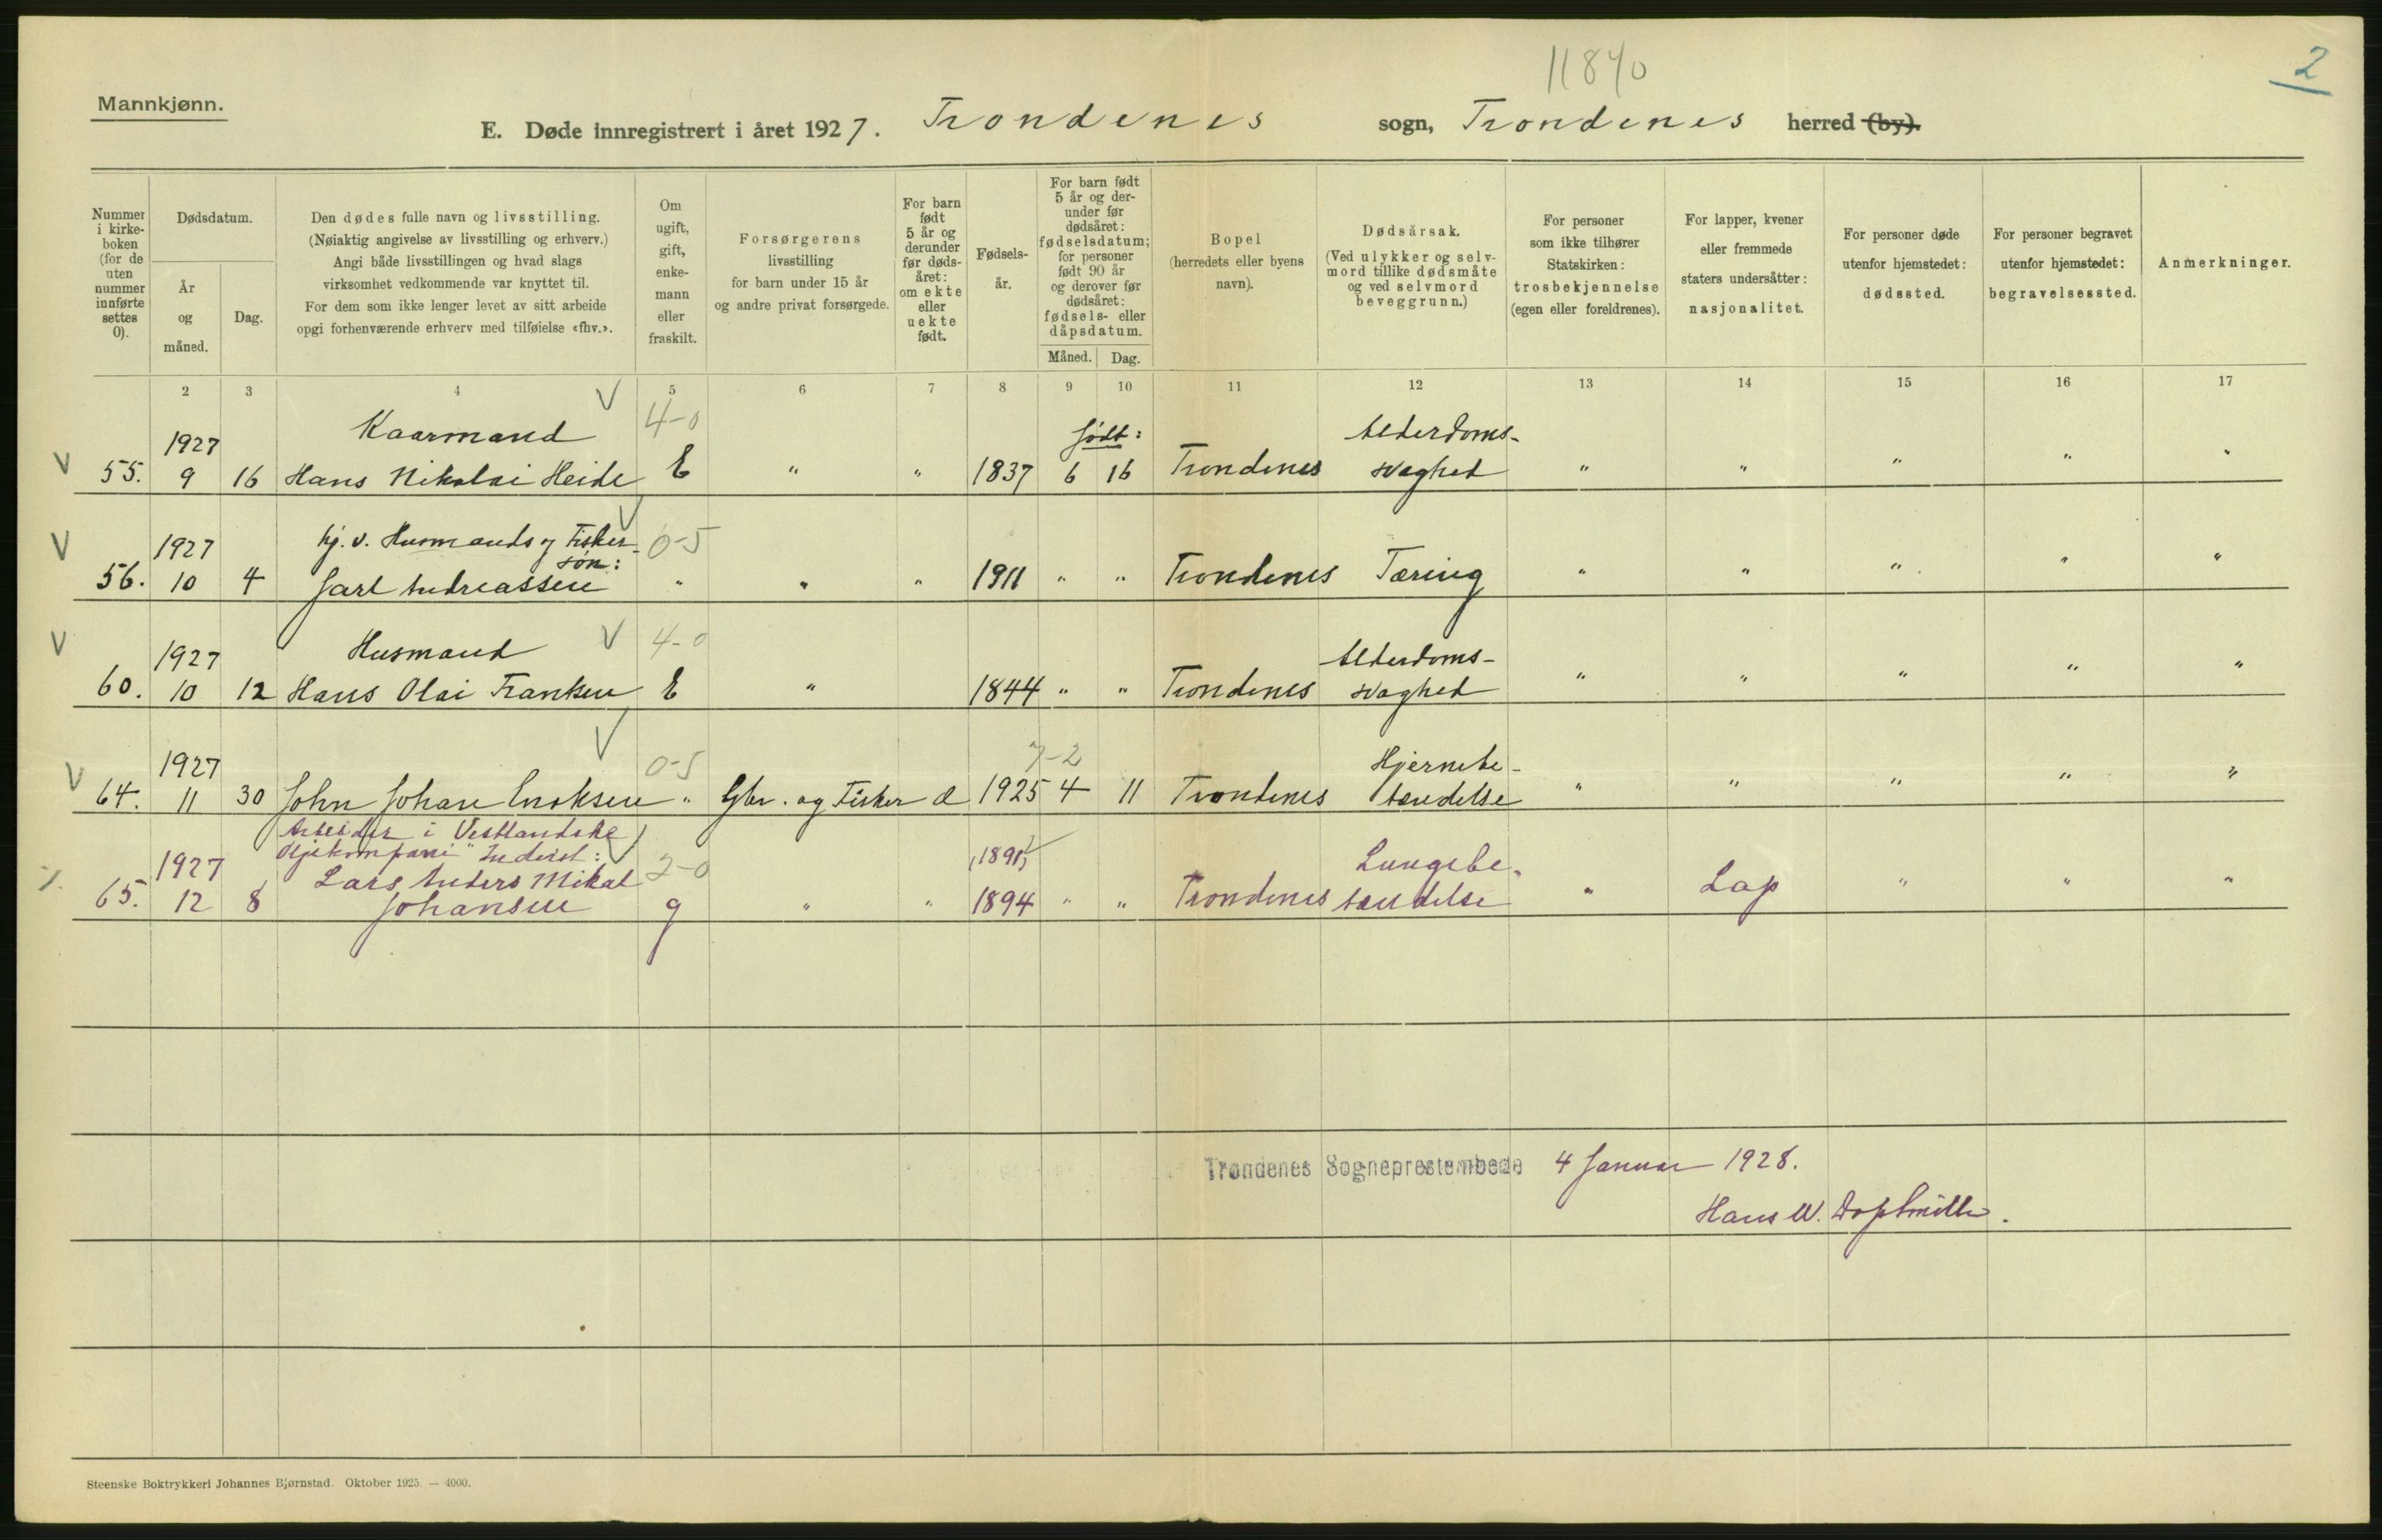 11840
2
Mannkjønn.
E. Døde innregistrert i året 1927. Trondenes sogn, Trondenes herred (by).
Nummer i kirke-boken (for de uten nummer innførte settes 0).
Dødsdatum.
År og måned.
Dag.
Den dødes fulle navn og livsstilling.
(Nøiaktig angivelse av livsstilling og erhverv.)
Angi både livsstillingen og hvad slags
virksomhet vedkommende var knyttet til.
For dem som ikke lenger levet av sitt arbeide
opgi forhenværende erhverv med tilføielse «fhv.».
Om ugift, gift, enke-mann eller fraskilt.
Forsørgerens
livsstilling
for barn under 15 år
og andre privat forsørgede.
For barn født 5 år og derunder før døds-året: om ekte eller uekte født.
Fødsels-år.
For barn født 5 år og der-under før dødsåret: fødselsdatum; for personer født 90 år og derover før dødsåret: fødsels- eller dåpsdatum.
Måned. Dag.
Bopel
(herredets eller byens
navn).
Dødsårsak.
(Ved ulykker og selv-
mord tillike dødsmåte
og ved selvmord
beveggrunn.)
For personer
som ikke tilhører
Statskirken:
trosbekjennelse
(egen eller foreldrenes).
For lapper, kvener
eller fremmede
staters undersåtter:
nasjonalitet.
For personer døde
utenfor hjemstedet:
dødssted.
For personer begravet
utenfor hjemstedet:
begravelsessted.
Anmerkninger.
2 3 4 5 6 7 8 9 10 11 12 13 14 15 16 17
1927 Kaarmand 4-0 født: Alderdoms-
55. 9 16 Hans Nikolai Heide E " " 1837 6 16 Trondenes svaghed " " " " "
1927 hj. v. Husmands og Fisker- 0-5
søn:
56. 10 4 Jarl Andreassen " " " 1911 " " Trondenes Tæring " " " " "
1927 Husmand 4-0 Alderdoms-
60. 10 12 Hans Olai Franksen E " 1844 " " Trondenes svaghed " " " " "
1927 0-5 7-2 Hjernebe-
64. 11 30 John Johan Enoksen " Gbr. og Fisker 1925 4 11 Trondenes tændelse " " " " "
Arbeider i Vestlandske
Oljekompani"
1927 Lars Anders Mikal 2-0 (1891) Lungebe-
65. 12 8 Johansen g " " 1894 " " Trondenes tændelse " Lap " " "
Trondenes Sogneprestembede 4 Januar 1928.
Hans W.
Steenske Boktrykkeri Johannes Bjørnstad. Oktober 1925. — 4000.